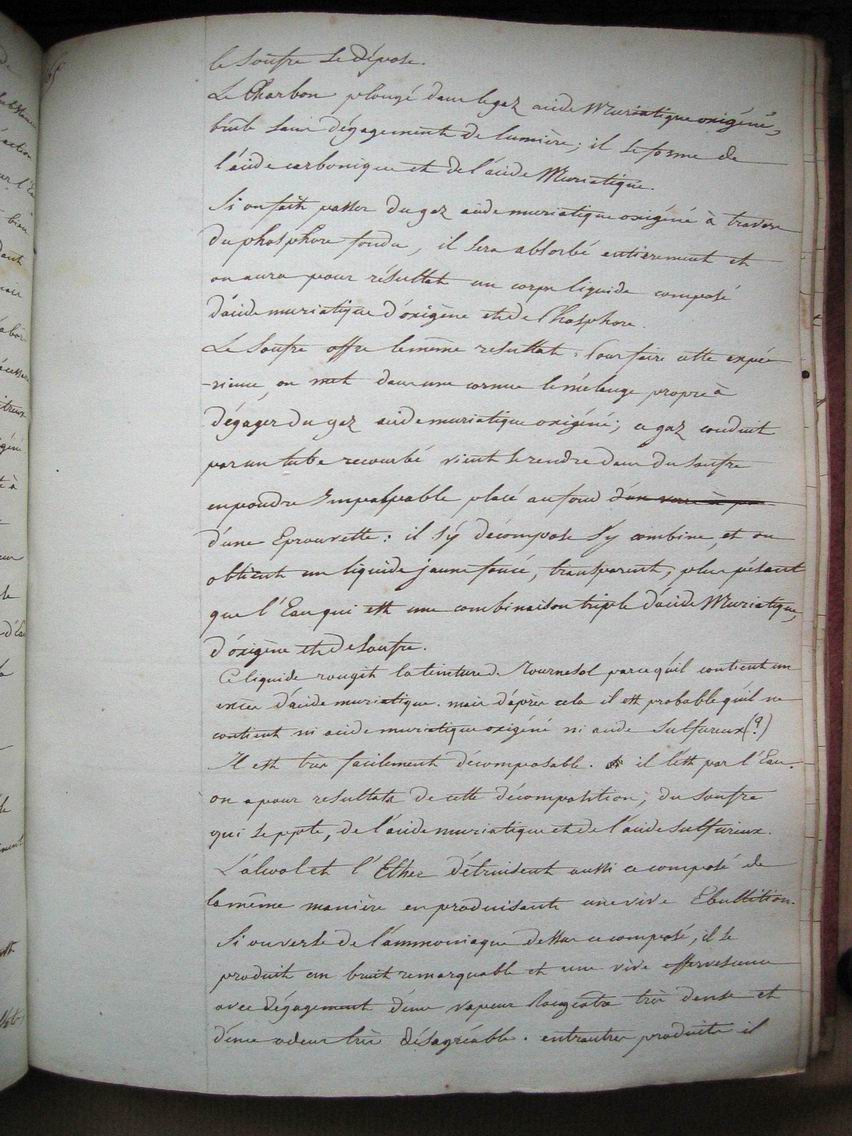 le Soufre se dépose.
Le Charbon plongé dans le gaz acide Muriatique oxigéné,
brule sans dégagement de lumière; il se forme de
l'acide carbonique et de l'acide Muriatique.
Si on fait passer du gaz acide muriatique oxigéné à travers
du phosphore fondu, il sera absorbé entierement et
on aura pour résultat un corps liquide composé
d'acide muriatique d'oxigène et de Phosphore.
Le Soufre offre le même resultat. Pour faire cette expé
-rience, on met dans une cornue le mélange propre à
dégager du gaz acide muriatique oxigéné; ce gaz conduit
par un tube recourbé vient se rendre dans du Soufre
en poudre Impalpable placé au fond d'un vase à
d'une Eprouvette: il s'y décompose s'y combine, et on
obtient un liquide jaune foncé, transparent, plus pésant
que l'Eau qui est une combinaison triple d'acide Muriatique,
d'oxigène et de Soufre.
Ce liquide rougit la teinture de Tournesol parcequ'il contient un
excès d'acide muriatique. mais d'après cela il est probable qu'il ne
contient ni acide muriatique oxigéné ni acide Sulfureux (?)
Il est très facilement décomposable. il l'est par l'Eau.
on a pour resultats de cette décomposition; du Soufre
qui se ppte, de l'acide muriatique et de l'acide sulfureux.
L'alcool et l'Ether détruisent aussi ce composé de
la même manière en produisant une vive Ebullition.
Si on verse de l'ammoniaque dessus ce composé, il se
produit un bruit remarquable et une vive effervescence
avec dégagement d'une vapeur très dense et
d'une odeur très désagréable. entr'autres produits il